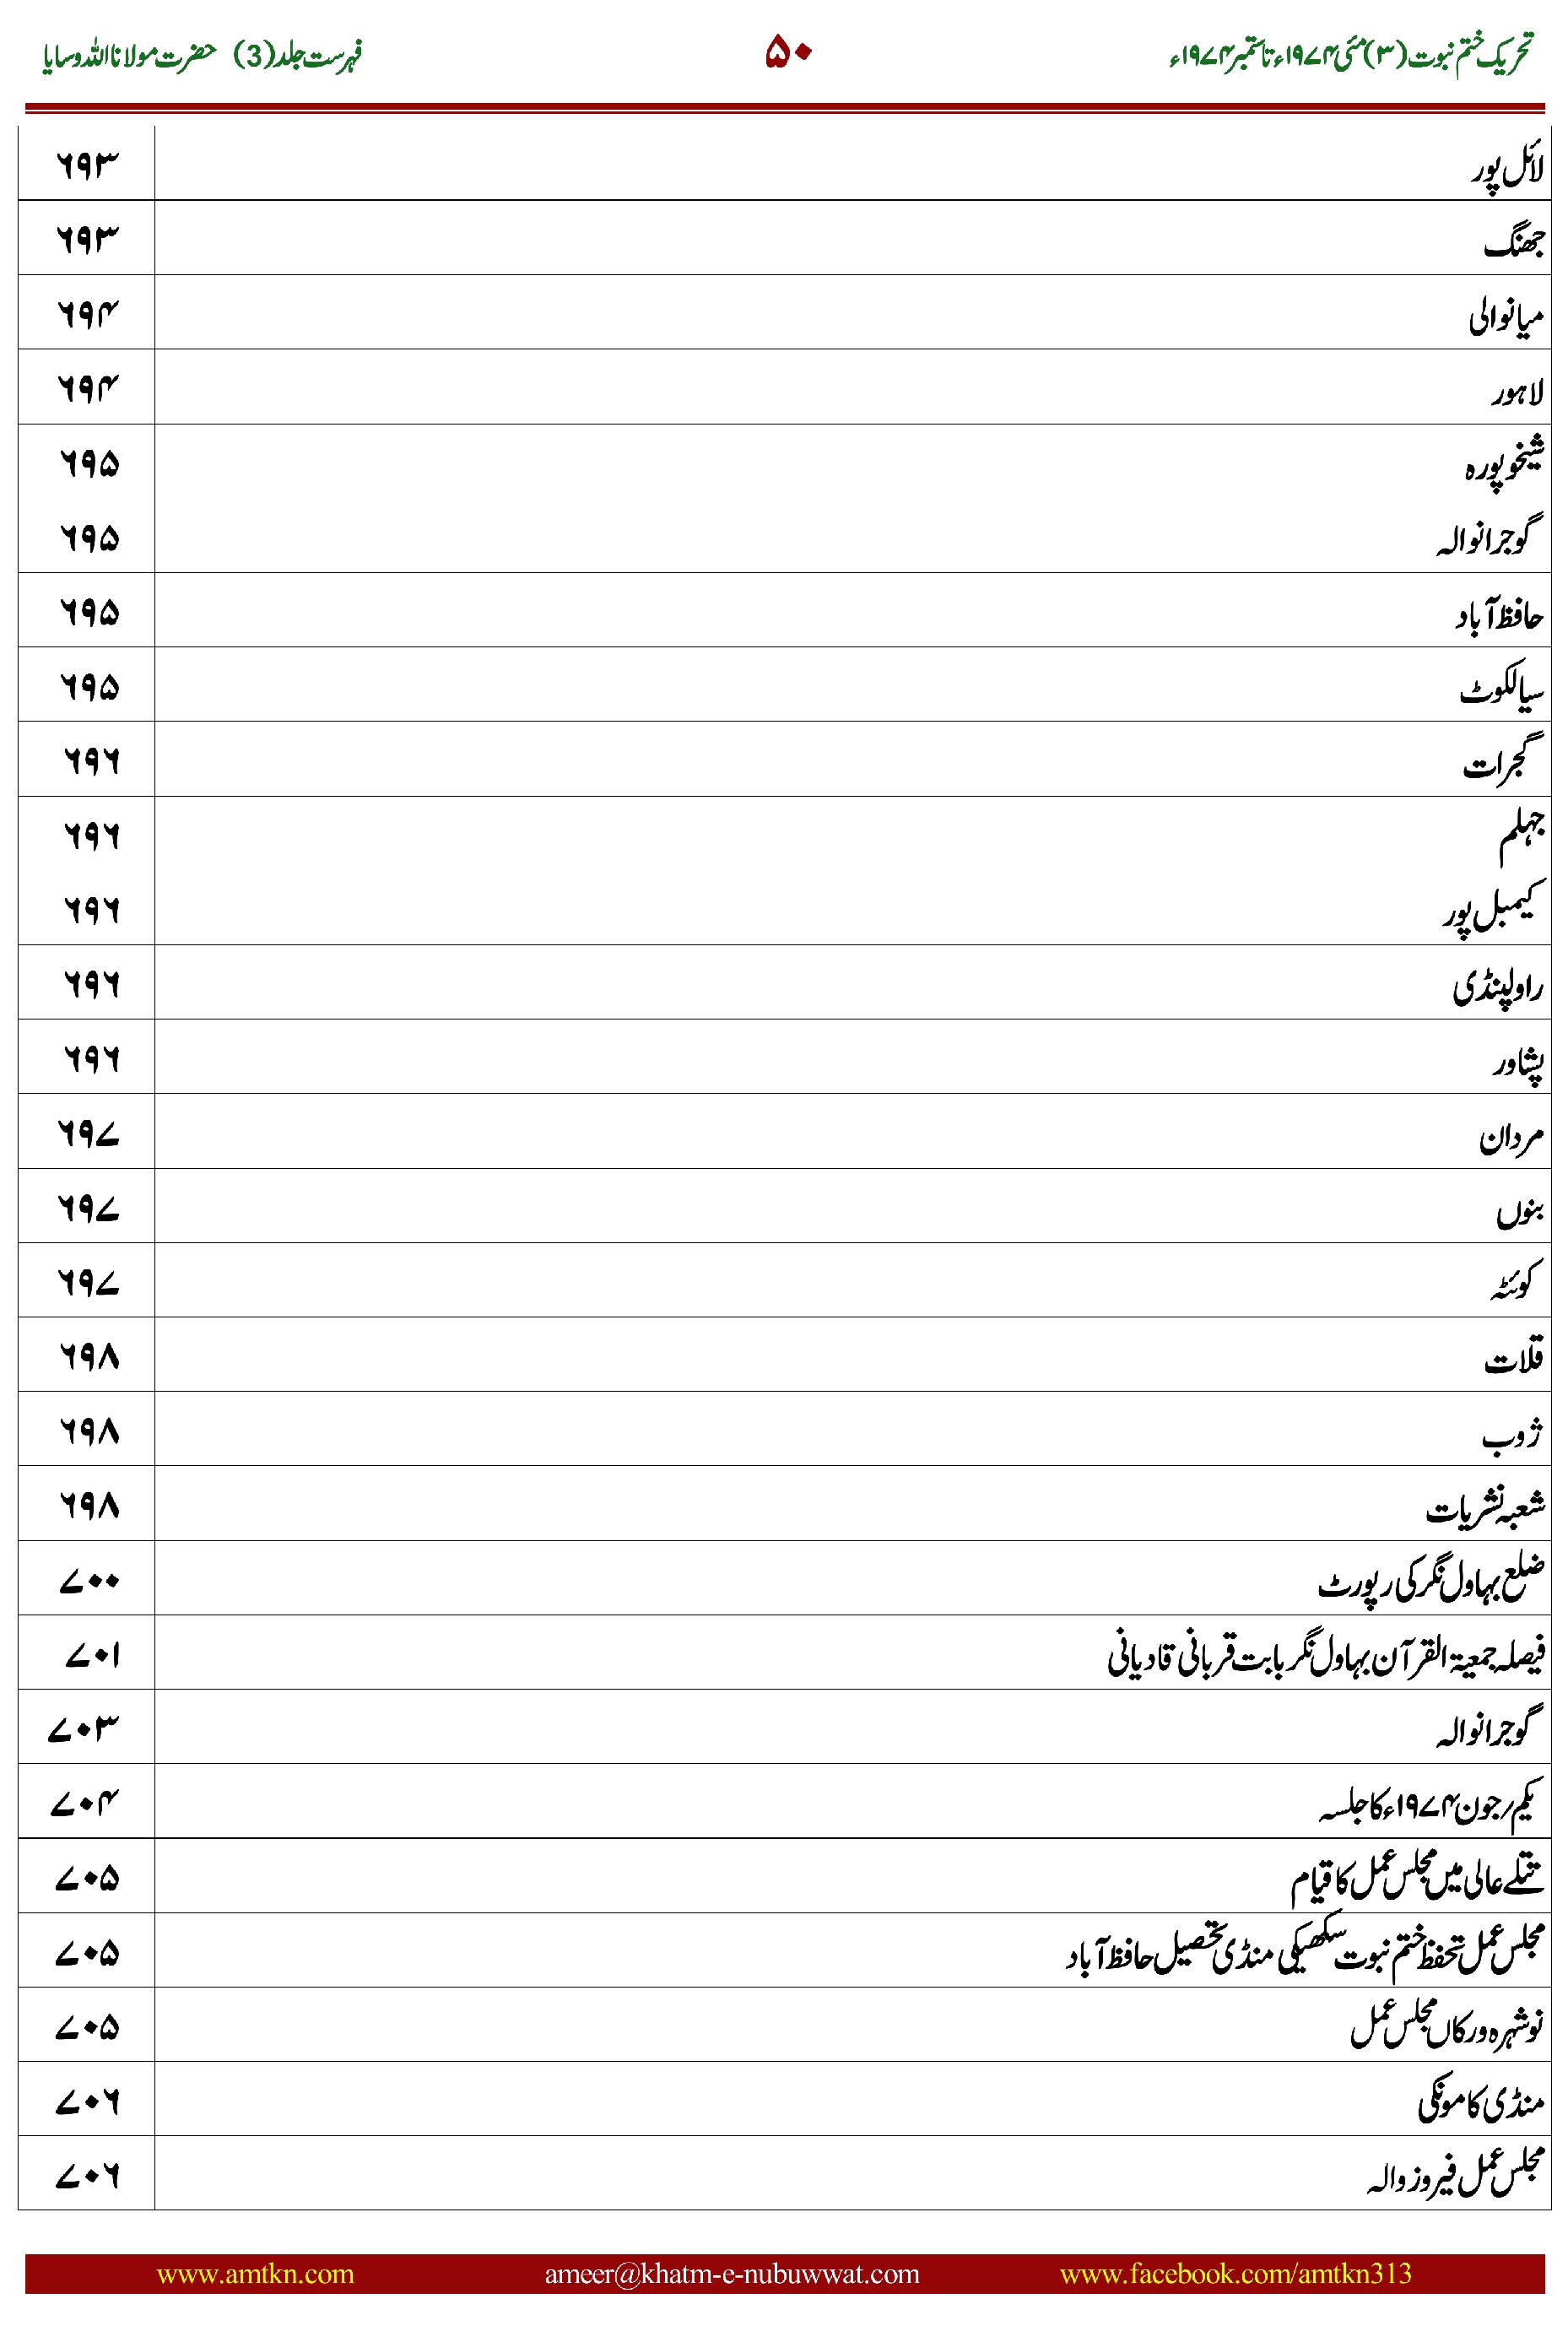 تحریک ختم نبوت (۳) مئی ۱۹۷۴ء تا ستمبر ۱۹۷۴ء ۵۰ فہرست جلد (3) حضرت مولانا اللہ وسایا
لائل پور ۶۹۳
جھنگ ۶۹۳
میانوالی ۶۹۴
لاہور ۶۹۴
شیخوپورہ ۶۹۵
گوجرانوالہ ۶۹۵
حافظ آباد ۶۹۵
سیالکوٹ ۶۹۵
گجرات ۶۹۶
جہلم ۶۹۶
کیمبل پور ۶۹۶
راولپنڈی ۶۹۶
پشاور ۶۹۶
مردان ۶۹۷
بنوں ۶۹۷
کوئٹہ ۶۹۷
قلات ۶۹۸
ژوب ۶۹۸
شعبہ نشریات ۶۹۸
ضلع بہاول نگر کی رپورٹ ۷۰۰
فیصلہ جمعیۃ القرآن بہاول نگر بابت قربانی قادیانی ۷۰۱
گوجرانوالہ ۷۰۳
یکم/جون ۱۹۷۴ء کا جلسہ ۷۰۴
تتلے عالی میں مجلس عمل کا قیام ۷۰۵
مجلس عمل تحفظ ختم نبوت سکھیکی منڈی تحصیل حافظ آباد ۷۰۵
نوشہرہ ورکاں مجلس عمل ۷۰۵
منڈی کامونکی ۷۰۶
مجلس عمل فیروز والہ ۷۰۶
www.amtkn.com ameer@khatm-e-nubuwwat.com www.facebook.com/amtkn313